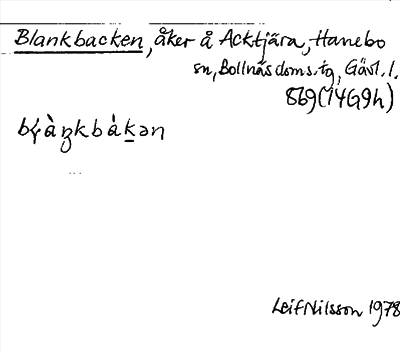 Blankbacken, åker å Acktjära, Hanebo
sn, Bollnäs doms. tg, Gävl. l.
869 (14G9h)
Leif Nilsson 1978